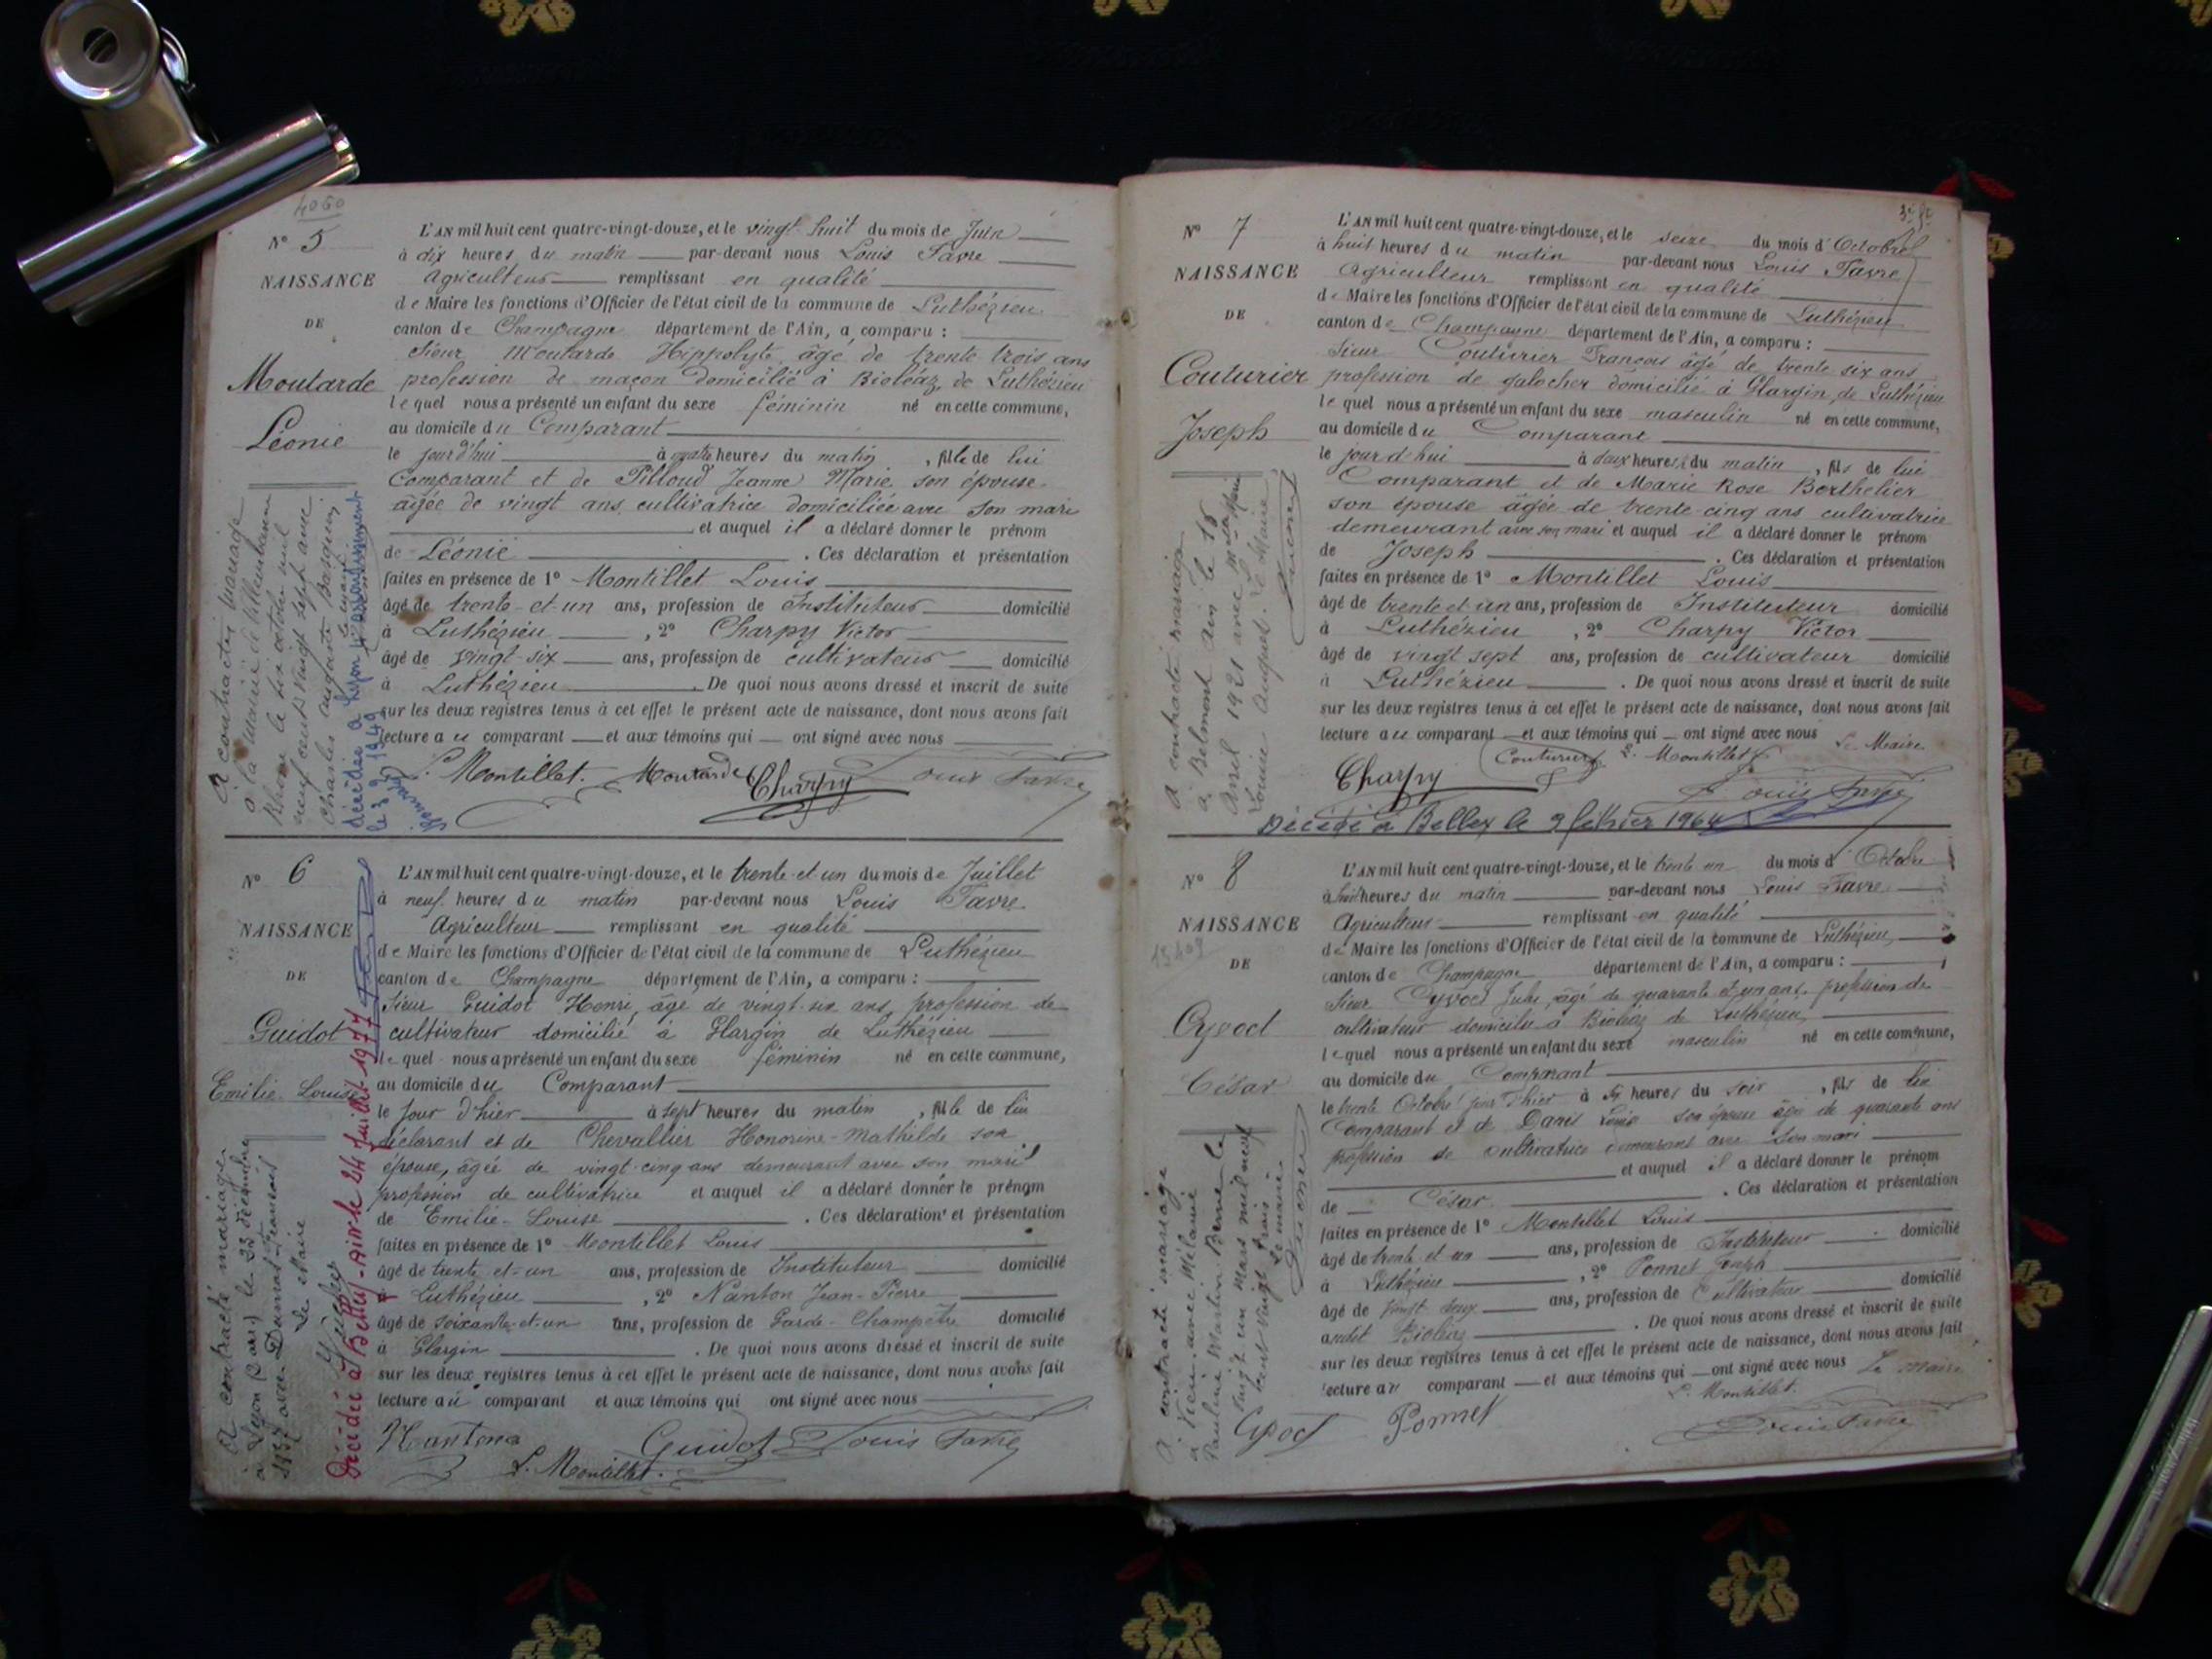 N° 5
NAISSANCE
DE
Moutarde
Léonie
L'AN mil huit cent quatre-vingt-douze, et le vingt huit du mois de Juin
à dix heures du matin par-devant nous Louis Favre
Agriculteur remplissant en qualité
de Maire les fonctions d'Officier de l'état civil de la commune de Luthézieu
canton de Champagne département de l'Ain, a comparu :
Sieur Moutarde Hippolyte âgé de trente trois ans
profession de maçon domicilié à Bioléaz, de Luthézieu
lequel nous a présenté un enfant du sexe féminin né en cette commune,
au domicile du Comparant
le jour d'hui à quatre heures du matin, fille de lui
Comparant et de Pilloud Jeanne Marie son épouse
agée de vingt ans, cultivatrice domiciliée avec son mari
et auquel il a déclaré donner le prénom
de Léonie. Ces déclaration et présentation
faites en présence de 1° Montillet Louis
âgé de trente-et-un ans, profession de Instituteur domicilié
à Luthézieu, 2° Charpy Victor
âgé de vingt-six ans, profession de cultivateur domicilié
à Luthézieu. De quoi nous avons dressé et inscrit de suite
sur les deux registres tenus à cet effet le présent acte de naissance, dont nous avons fait
lecture au comparant et aux témoins qui ont signé avec nous
L. Montillet. Moutarde Charpy Louis Favre
A contracté mariage
à la mairie de Villeurbanne
Rhône le six octobre mil
neuf cent vingt sept avec
Charles Auguste
décédée à Lyon arrondissement
le 3 9 1949
N° 6
NAISSANCE
DE
Guidot
Emilie-Louise
L'AN mil huit cent quatre-vingt-douze, et le trente-et-un du mois de Juillet
à neuf heures du matin par-devant nous Louis Favre
Agriculteur remplissant en qualité
de Maire les fonctions d'Officier de l'état civil de la commune de Luthézieu
canton de Champagne département de l'Ain, a comparu :
Sieur Guidot Henri, âgé de vingt-six ans, profession de
cultivateur domicilié à Glargin de Luthézieu
lequel nous a présenté un enfant du sexe féminin né en cette commune,
au domicile du Comparant
le jour d'hier à sept heures du matin, fille de lui
déclarant et de Chevallier Honorine-Mathilde son
épouse, âgée de vingt-cinq ans demeurant avec son mari
profession de cultivatrice et auquel il a déclaré donner le prénom
de Emilie-Louise. Ces déclaration et présentation
faites en présence de 1° Montillet Louis
âgé de trente-et-un ans, profession de Instituteur domicilié
à Luthézieu, 2° Nanton Jean-Pierre
âgé de soixante-et-un ans, profession de Garde-Champêtre domicilié
à Glargin. De quoi nous avons dressé et inscrit de suite
sur les deux registres tenus à cet effet le présent acte de naissance, dont nous avons fait
lecture au comparant et aux témoins qui ont signé avec nous
Nanton Guidot Louis Favre
L. Montillet.
A contracté mariage
à Lyon le 23 décembre
1937 avec Dumas François
Le Maire
Décédée à Belley-Ain le 24 Juillet 1977
N° 7
NAISSANCE
DE
Couturier
Joseph
L'AN mil huit cent quatre-vingt-douze, et le seize du mois d'Octobre
à huit heures du matin par-devant nous Louis Favre
Agriculteur remplissant en qualité
de Maire les fonctions d'Officier de l'état civil de la commune de Luthézieu
canton de Champagne département de l'Ain, a comparu :
Sieur Couturier François âgé de trente-six ans
profession de galocher domicilié à Glargin, de Luthézieu
lequel nous a présenté un enfant du sexe masculin né en cette commune,
au domicile du Comparant
le jour d'hui à deux heures du matin, fils de lui
Comparant et de Marie Rose Berthelier
son épouse âgée de trente-cinq ans cultivatrice
demeurant avec son mari et auquel il a déclaré donner le prénom
de Joseph. Ces déclaration et présentation
faites en présence de 1° Montillet Louis
âgé de trente et un ans, profession de Instituteur domicilié
à Luthézieu, 2° Charpy Victor
âgé de vingt sept ans, profession de cultivateur domicilié
à Luthézieu. De quoi nous avons dressé et inscrit de suite
sur les deux registres tenus à cet effet le présent acte de naissance, dont nous avons fait
lecture au comparant et aux témoins qui ont signé avec nous Le Maire
Couturier L. Montillet
Charpy Louis Favre
Décédé à Belley le 9 février 1964
A contracté mariage
à Belmont Ain le 16
Avril 1921 avec
Louise Le Maire
N° 8
NAISSANCE
DE
Cyvoct
César
L'AN mil huit cent quatre-vingt-douze, et le trente un du mois d'Octobre
à huit heures du matin par-devant nous Louis Favre
Agriculteur remplissant en qualité
de Maire les fonctions d'Officier de l'état civil de la commune de Luthézieu
canton de Champagne département de l'Ain, a comparu :
Sieur Cyvoct Jules, âgé de quarante et un ans, profession de
cultivateur domicilié à Bioléaz de Luthézieu
lequel nous a présenté un enfant du sexe masculin né en cette commune,
au domicile du Comparant
le trente Octobre jour d'hier à six heures du soir, fils de lui
Comparant et de son épouse âgée de quarante ans
profession de cultivatrice demeurant avec son mari
et auquel il a déclaré donner le prénom
de César. Ces déclaration et présentation
faites en présence de 1° Montillet Louis
âgé de trente et un ans, profession de Instituteur domicilié
à Luthézieu, 2° Ponnet Joseph
âgé de vingt deux ans, profession de Cultivateur domicilié
audit Bioléaz. De quoi nous avons dressé et inscrit de suite
sur les deux registres tenus à cet effet le présent acte de naissance, dont nous avons fait
lecture au comparant et aux témoins qui ont signé avec nous Le Maire
L. Montillet.
Cyvoct Ponnet Louis Favre
A contracté mariage
à Vieu avec Mélanie
Pauline le
vingt un mars mil neuf
cent vingt trois
Le maire